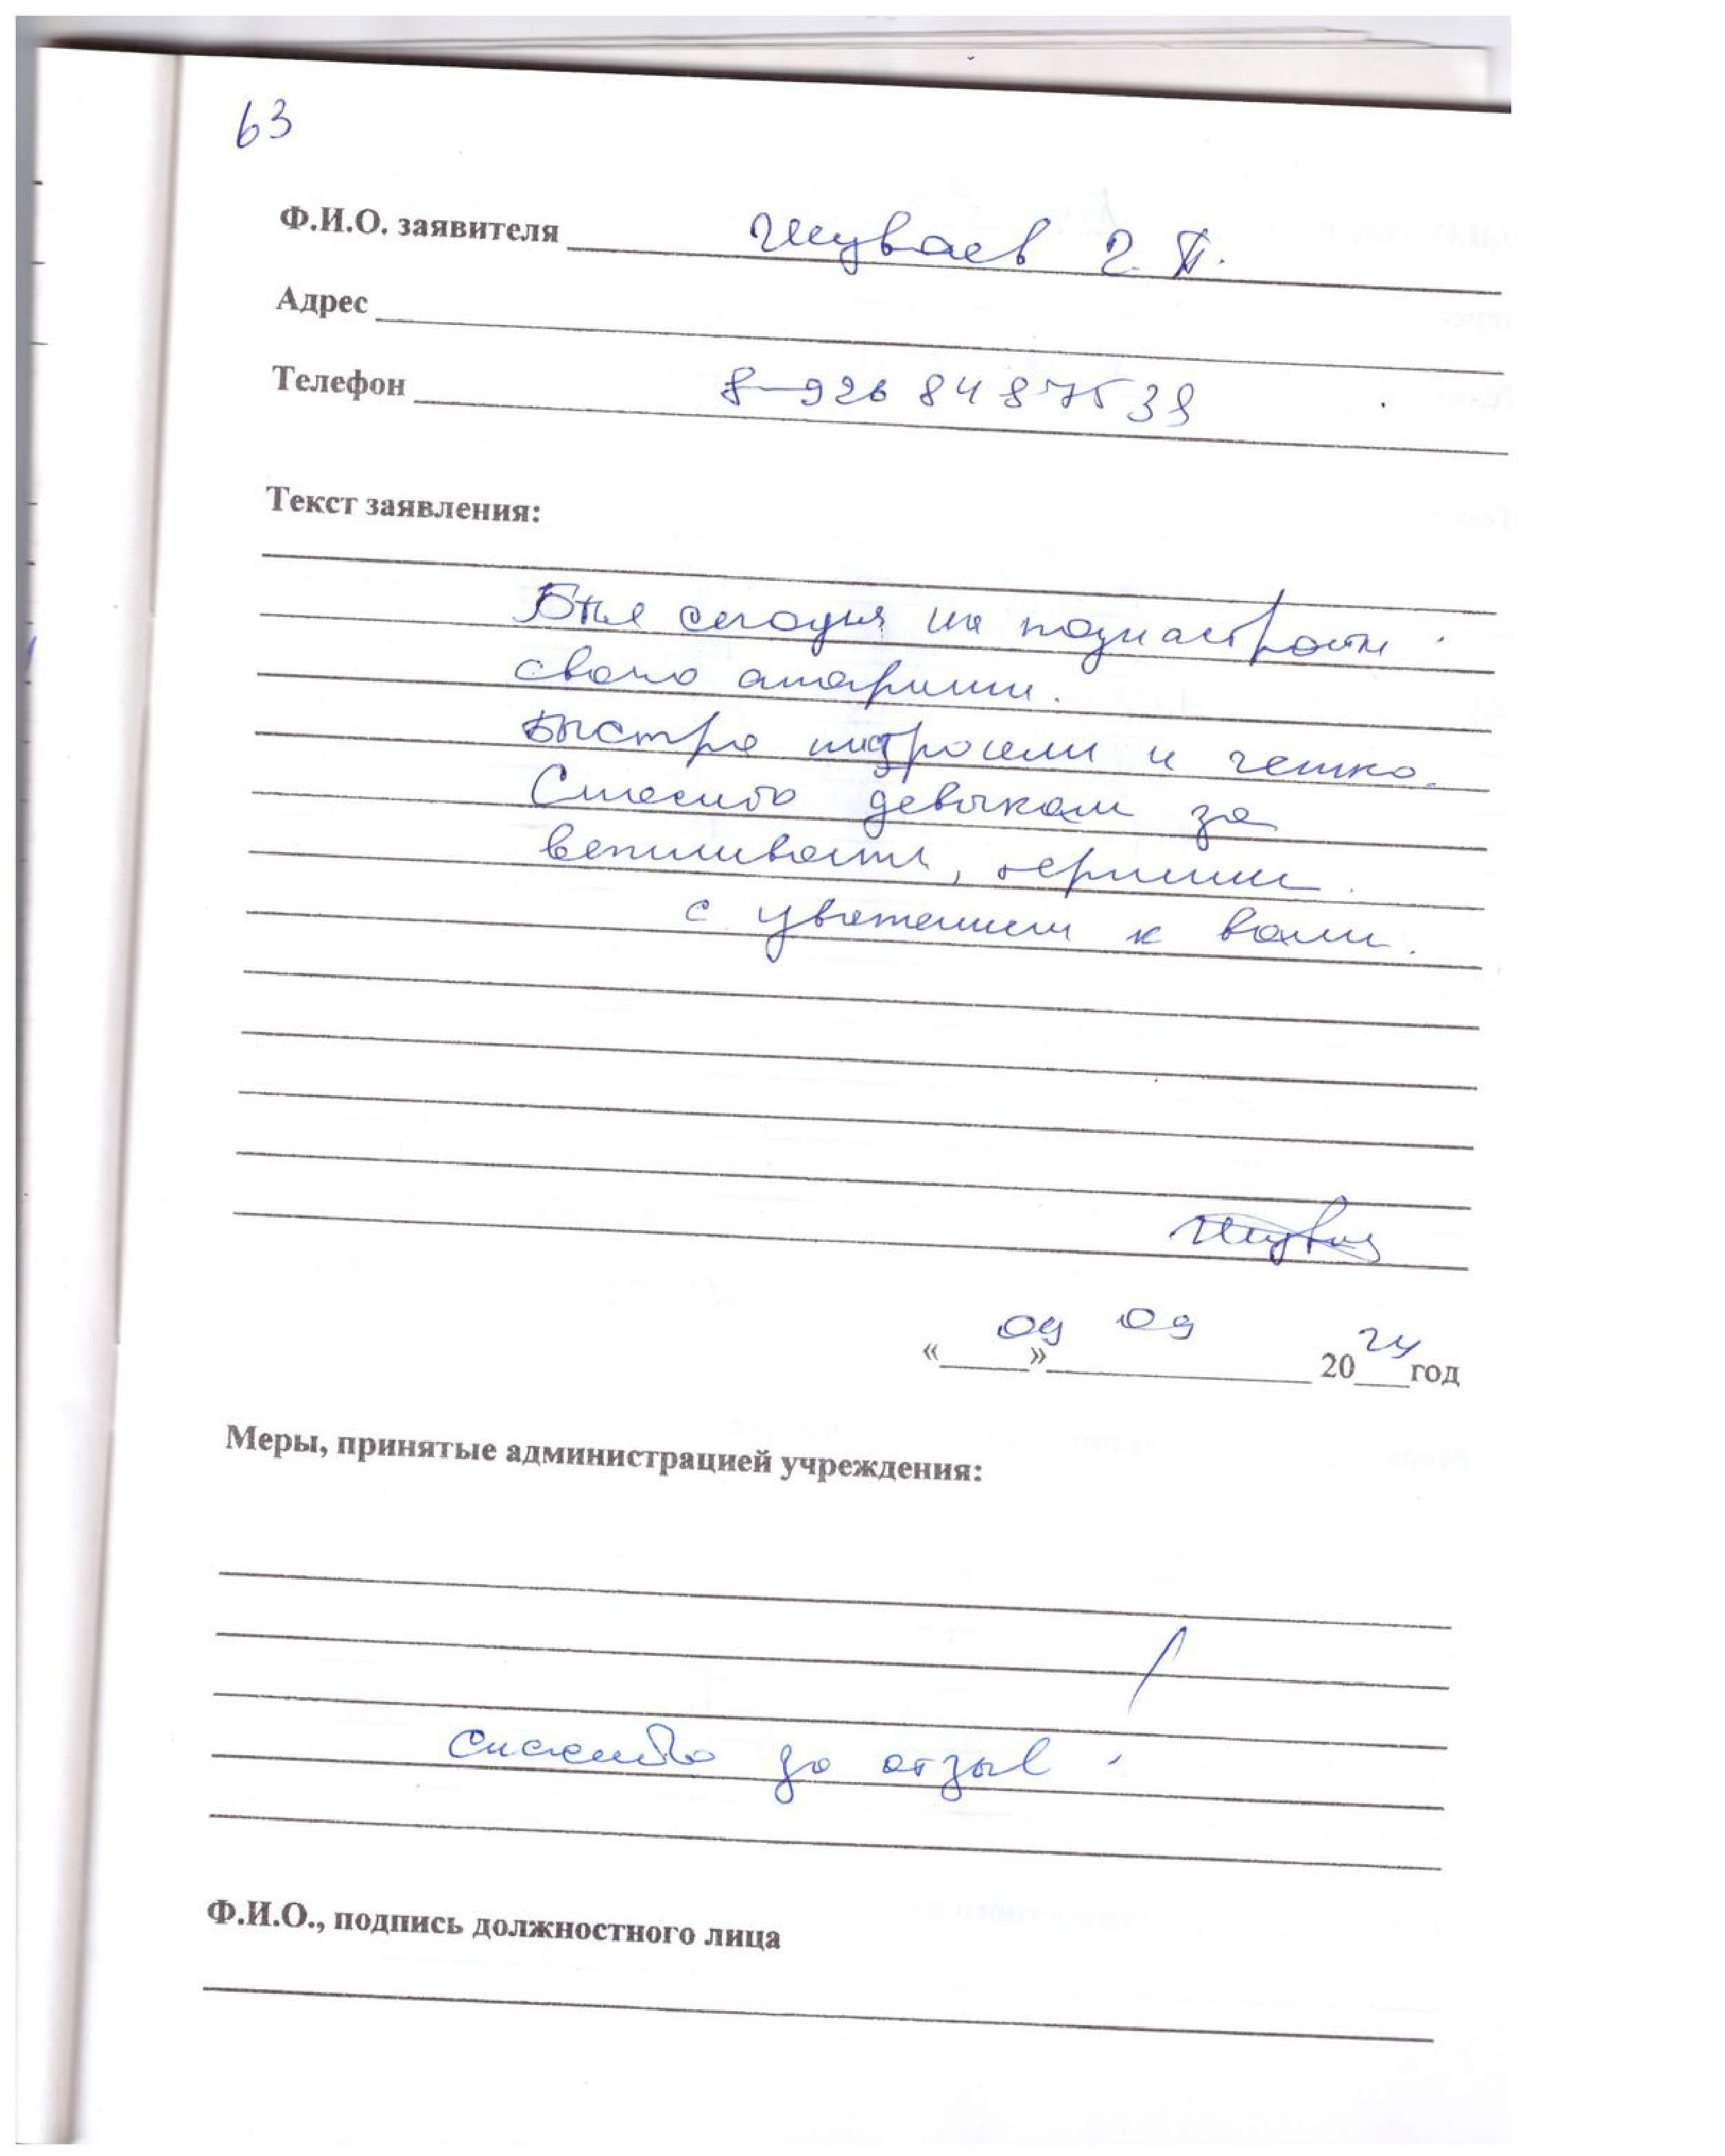 63
Ф.И.О. заявителя Шуваев Г. П.
Адрес
Телефон 8-926 84 87539
Текст заявления:
Был сегодня на
свою
Быстро и четко.
Спасибо девочкам за
вежливость,
с уважением к вам.
«09» 09 2024 год
Меры, принятые администрацией учреждения:
спасибо за отзыв!
Ф.И.О., подпись должностного лица